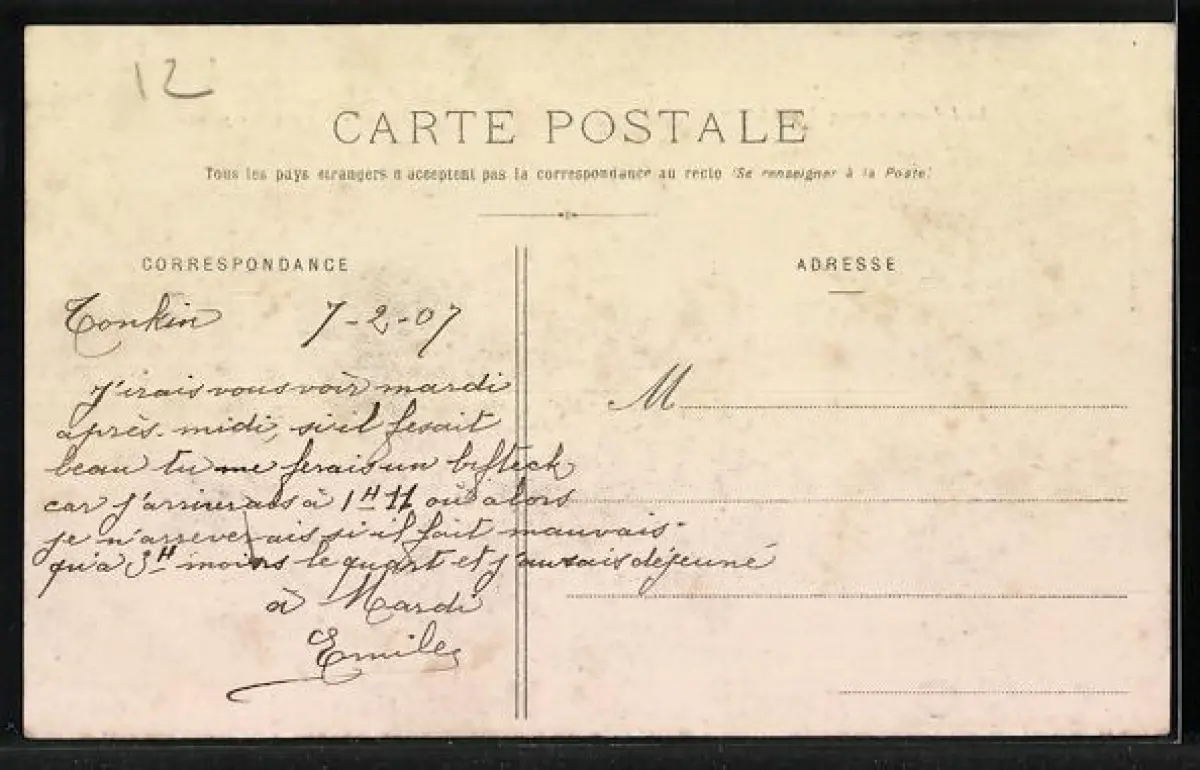 12
CARTE POSTALE
Tous les pays étrangers n'acceptent pas la correspondance au recto (Se renseigner à la Poste)
CORRESPONDANCE
ADRESSE
Tonkin 7-2-07
J'irais vous voir mardi
après-midi, si il fesait
beau tu me ferais un bifteck
car j'arriverais à 1H 11 ou alors
je n'arreverais si il fait mauvais
qu'a 3H moins le quart et j'aurais déjeuné
à Mardi
Emile
M